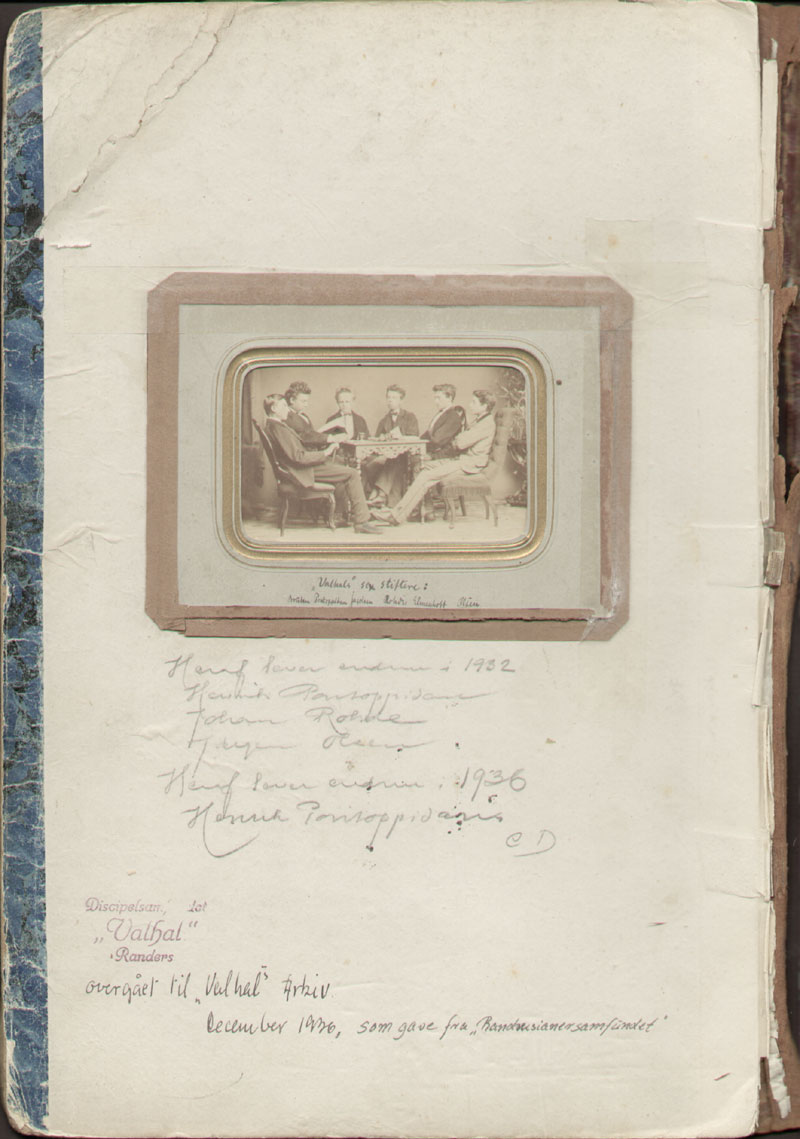 „Valhals" som stiftere:
Pontoppidan Rohde Elmenhoff Olsen
Heraf lever endnu i 1932
Henrik Pontoppidan
Johan Rohde
Jørgen
Heraf lever endnu i 1936
Henrik Pontoppidan
C D
Discipelsam
„Valhal"
Randers
overgået til „Valhal"s Arkiv
December 1936, som gave fra „Randrusianersamfundet"